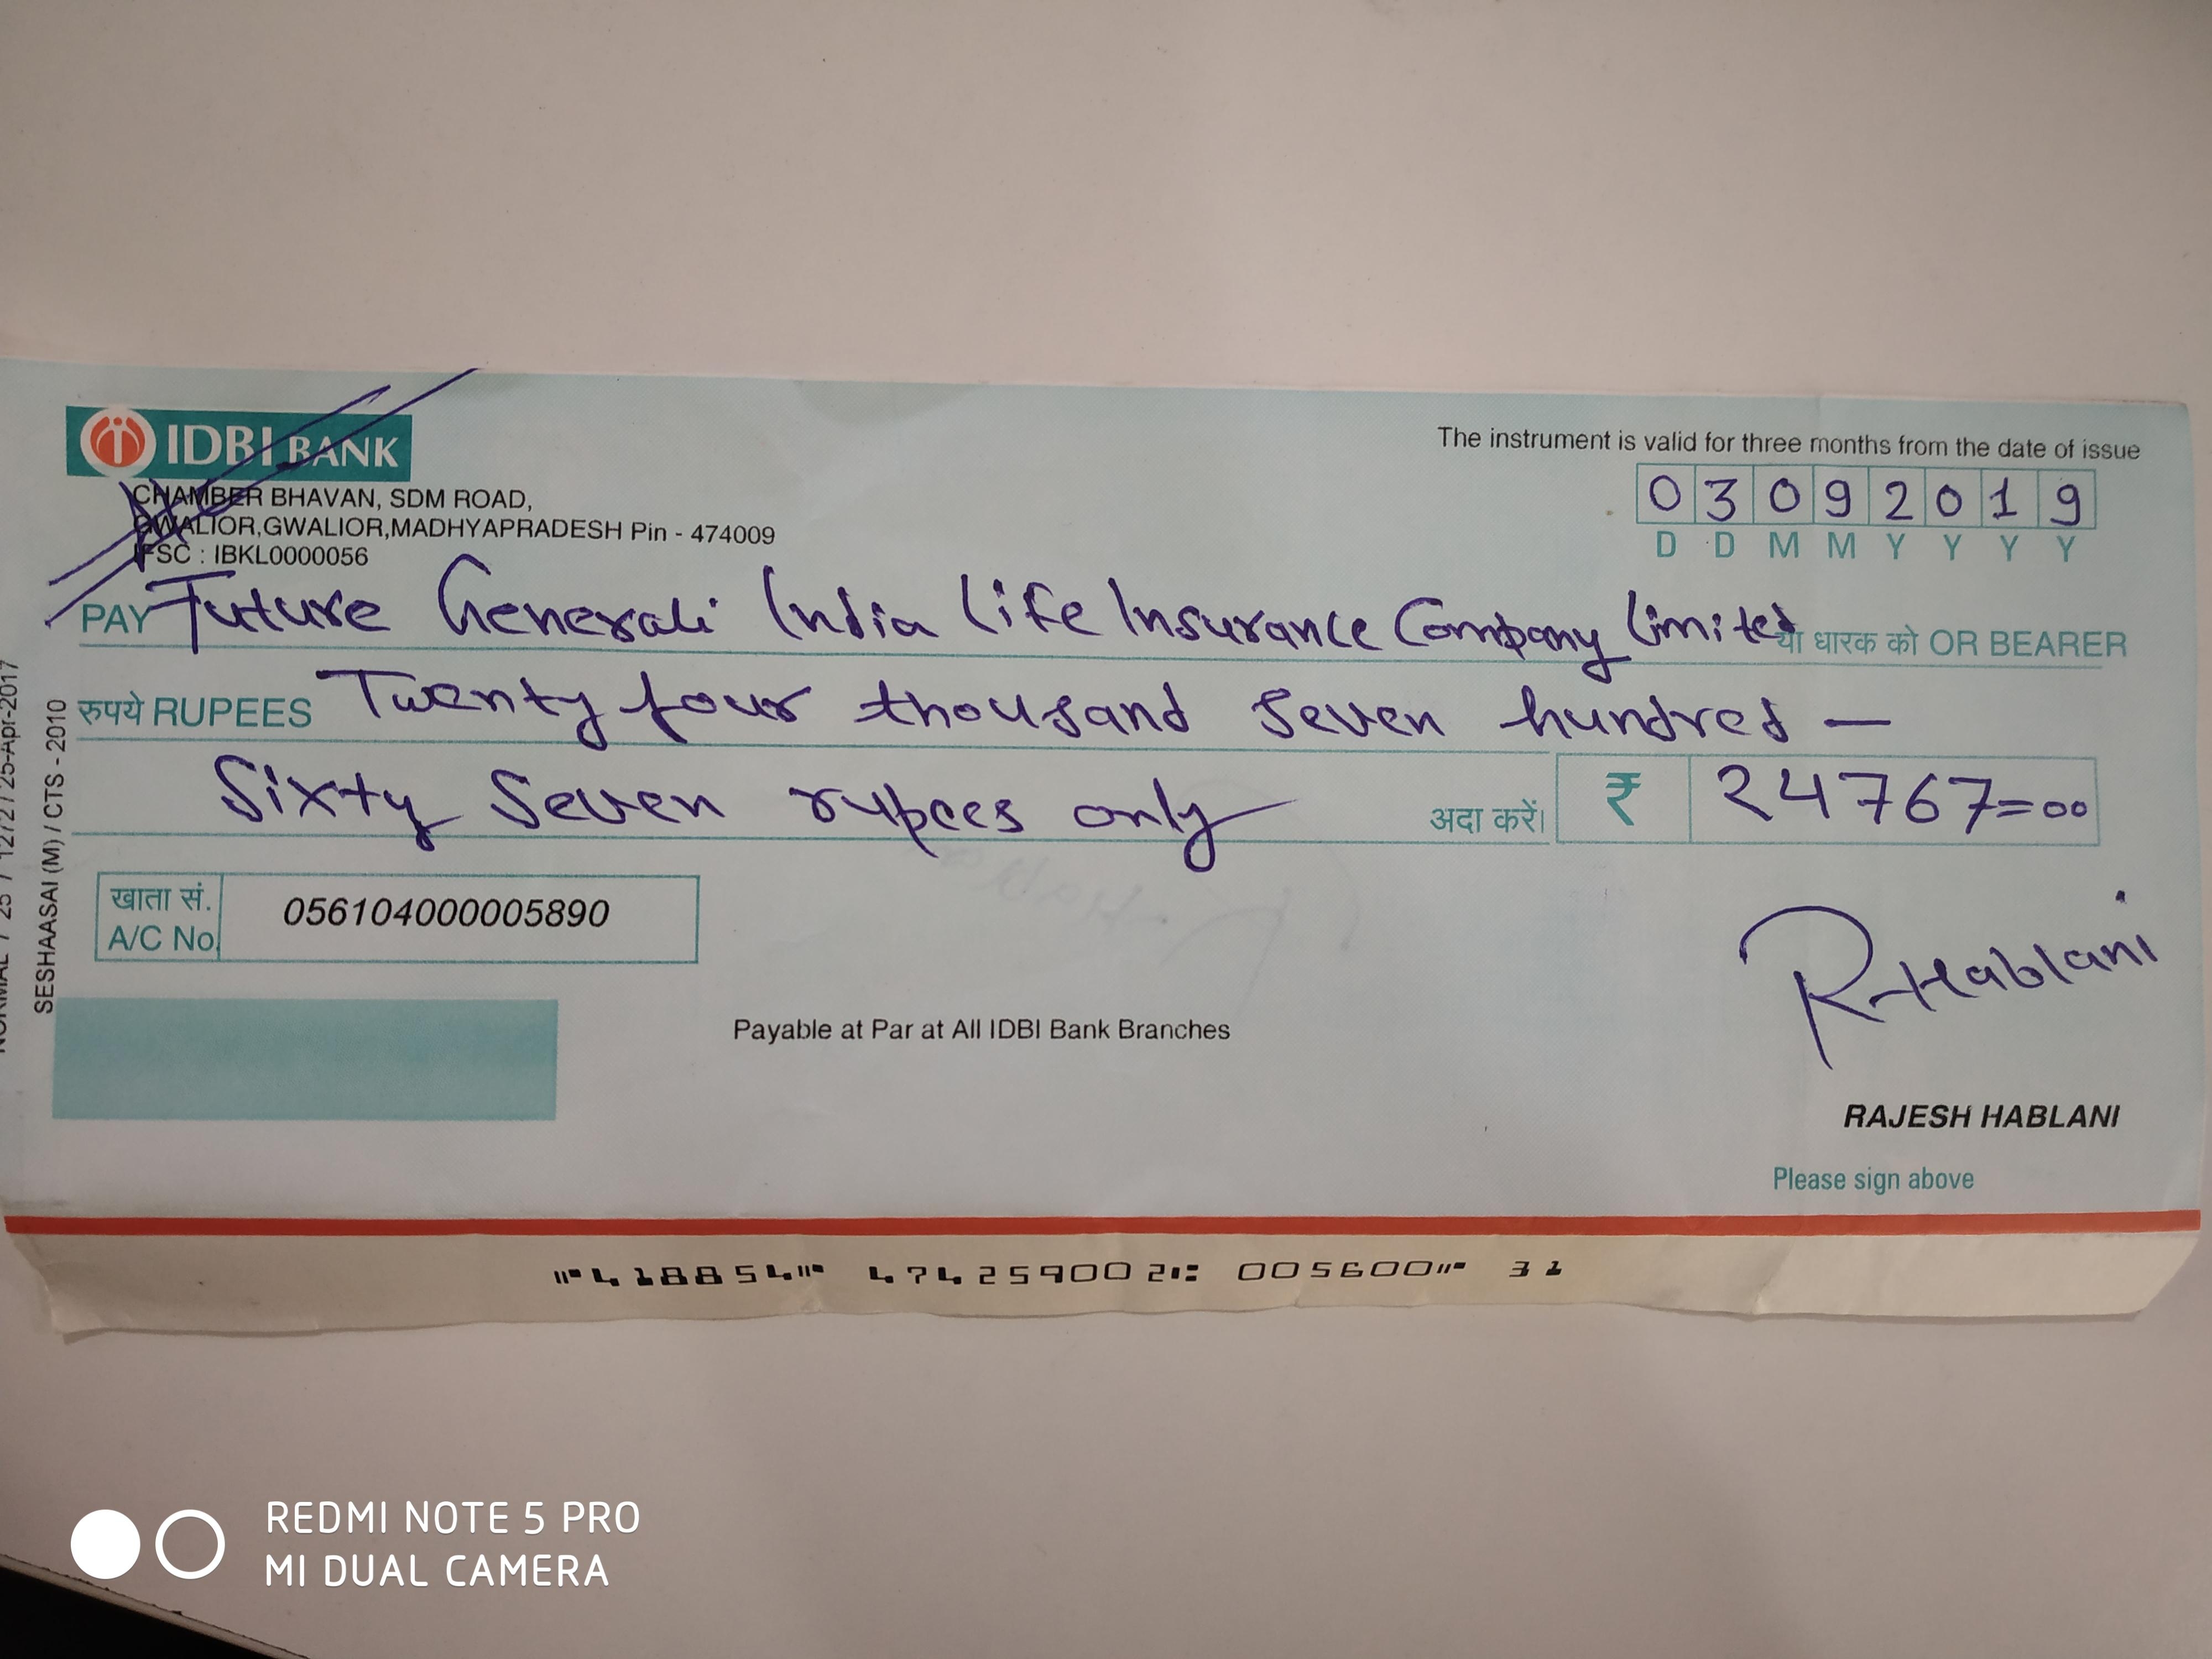 IDBI BANK
CHAMBER BHAVAN, SDM ROAD,
GWALIOR,GWALIOR,MADHYAPRADESH Pin - 474009
IFSC : IBKL0000056
The instrument is valid for three months from the date of issue
0 3 0 9 2 0 1 9
D D M M Y Y Y Y
PAY Future Generali India Life Insurance Company Limited या धारक को OR BEARER
रुपये RUPEES Twenty four thousand seven hundred —
Sixty Seven rupees only अदा करें। ₹ 24767=00
खाता सं.
A/C No. 056104000005890
R Hablani
Payable at Par at All IDBI Bank Branches
RAJESH HABLANI
Please sign above
SESHAASAI (M) / CTS - 2010
⑈418854⑈ 474259002⑆ 005600⑈ 31
REDMI NOTE 5 PRO
MI DUAL CAMERA